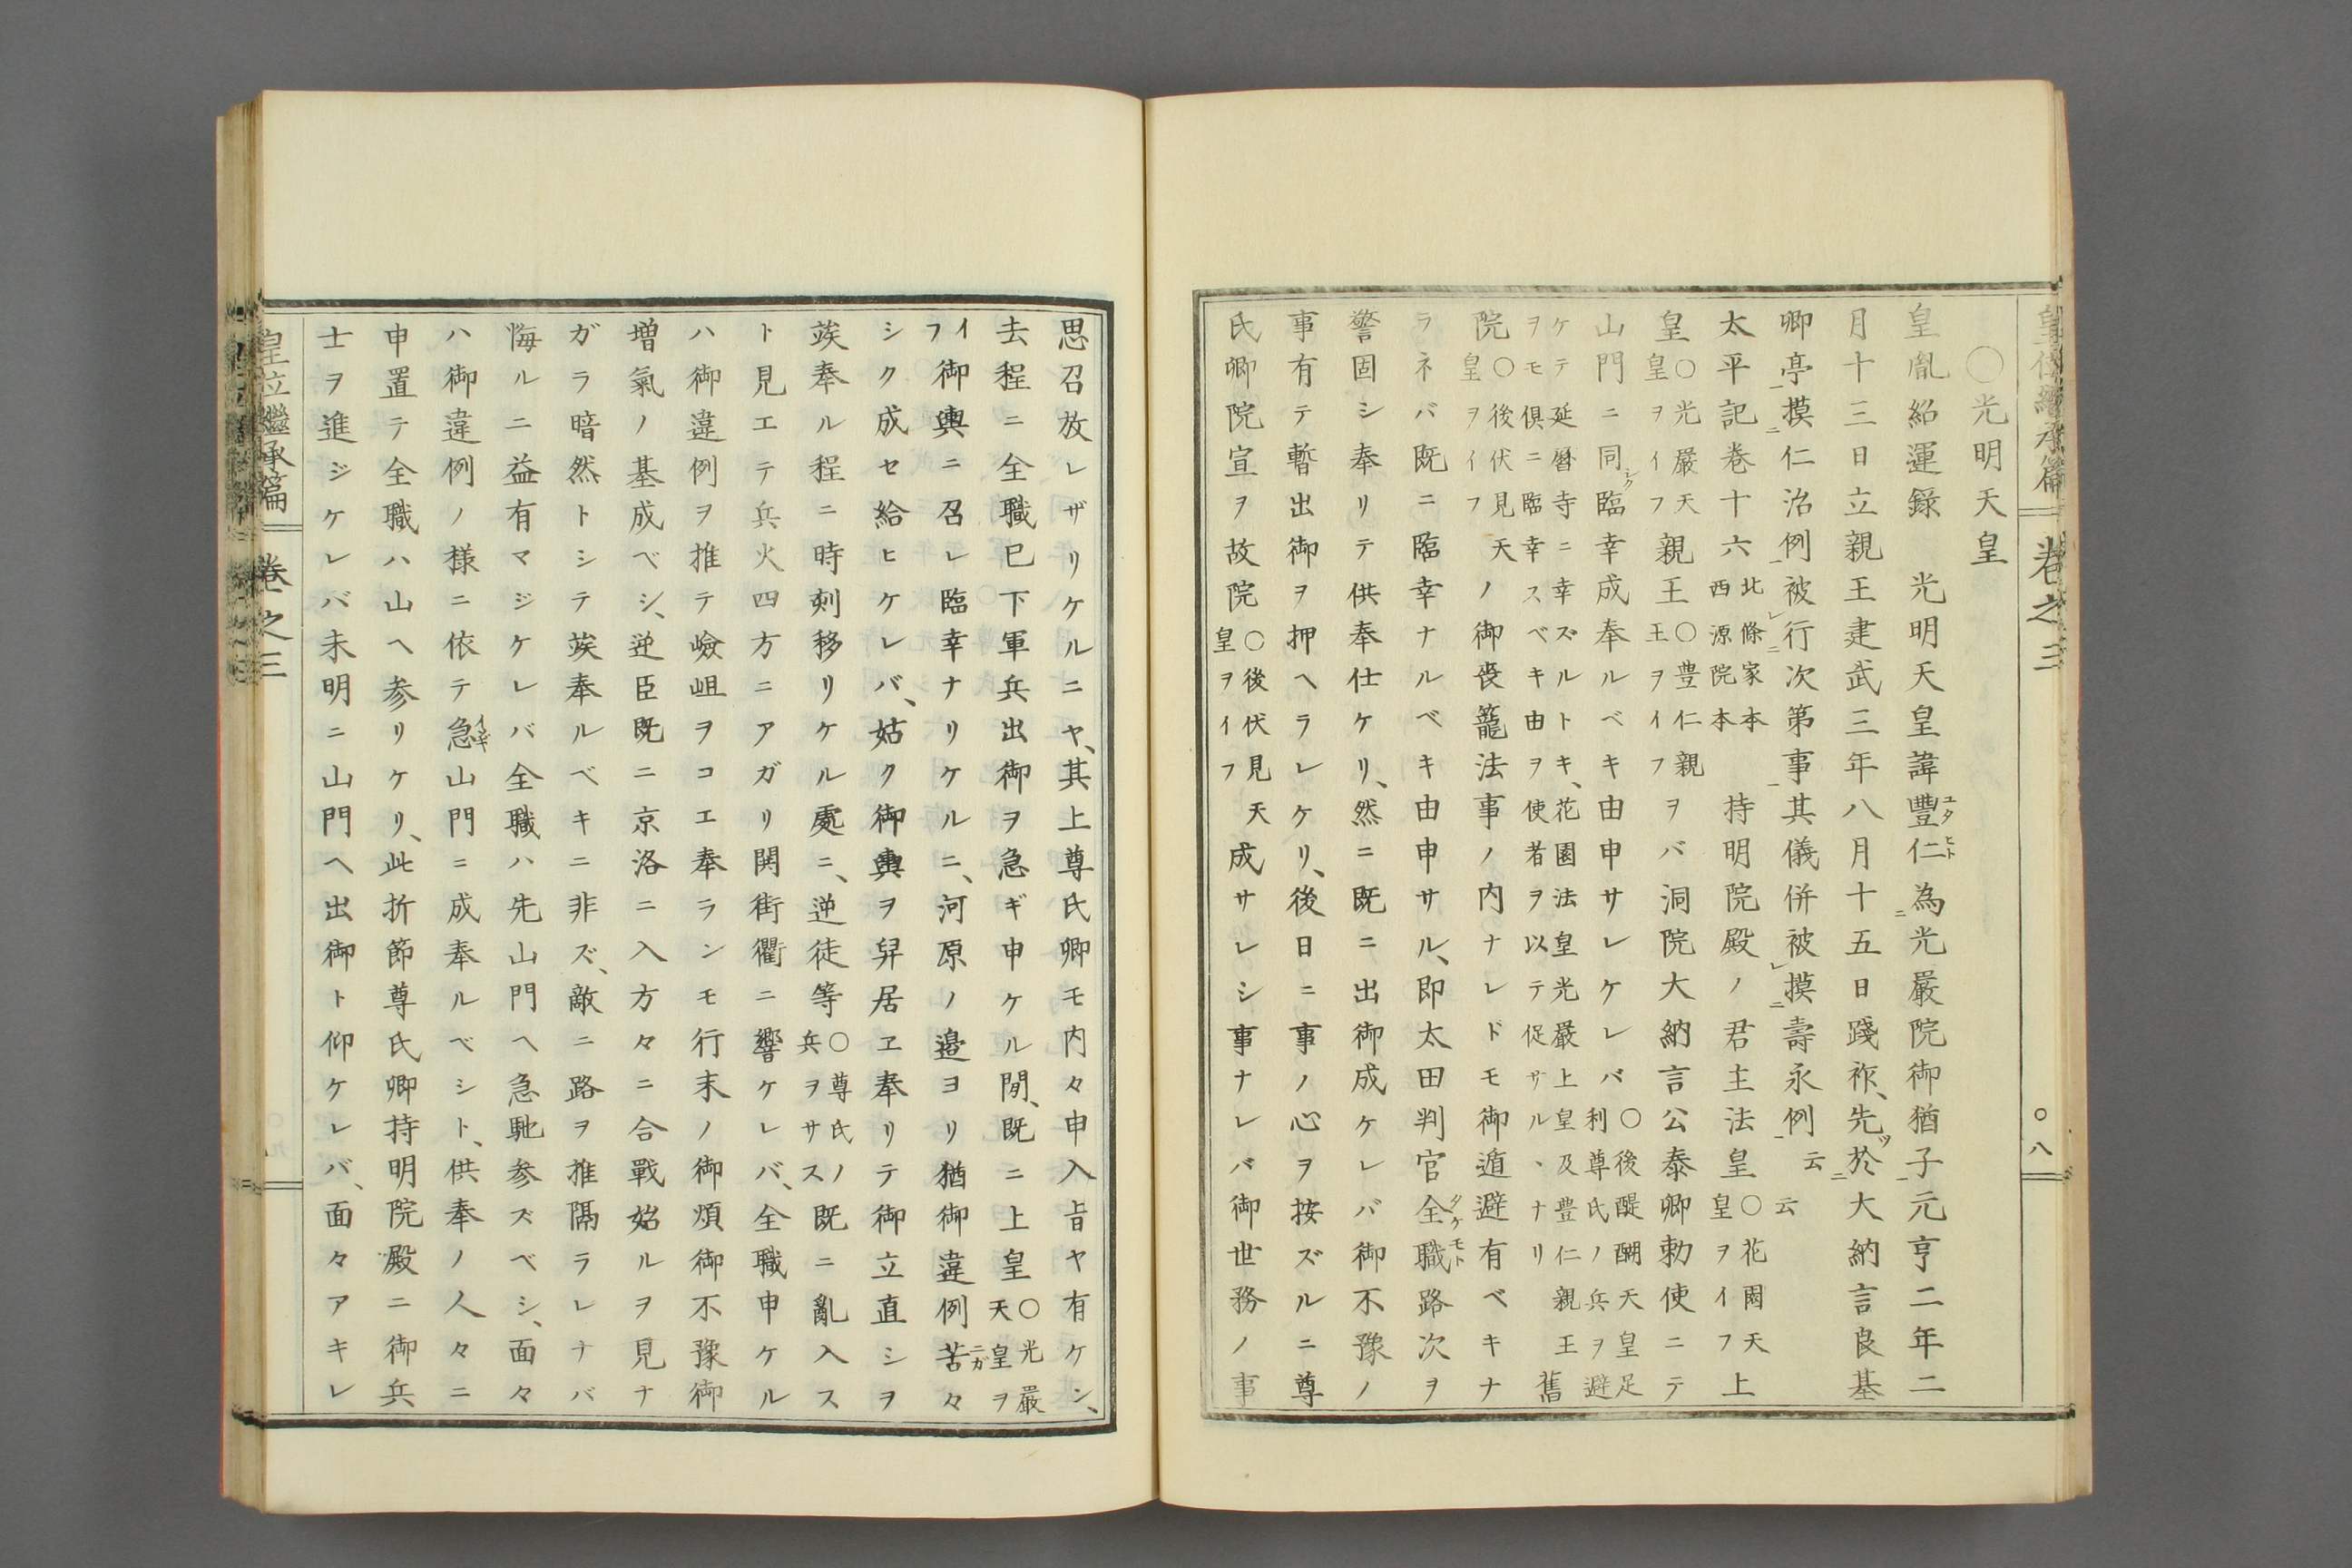 皇位繼承篇 卷之三 〇八
〇光明天皇
皇胤紹運錄 光明天皇諱豐仁為光嚴院御猶子元亨二年二
月十三日立親王建武三年八月十五日踐祚、先於大納言良基
卿亭摸仁治例被行次第事其儀併被摸壽永例云云
太平記卷十六北條家本西源院本 持明院殿ノ君主法皇〇花園天皇ヲイフ上
皇〇光嚴天皇ヲイフ親王〇豊仁親王ヲイフヲバ洞院大納言公泰卿勅使ニテ
山門ニ同臨幸成奉ルベキ由申サレケレバ〇後醍醐天皇足利尊氏ノ兵ヲ避
ケテ延曆寺ニ幸ズルトキ、花園法皇光嚴上皇及豊仁親王ヲモ倶ニ臨幸スベキ由ヲ使者ヲ以テ促サル、ナリ舊
院〇後伏見天皇ヲイフノ御喪籠法事ノ内ナレドモ御遁避有ベキナ
ラネバ既ニ臨幸ナルベキ由申サル、即太田判官全職路次ヲ
警固シ奉リテ供奉仕ケリ、然ニ既ニ出御成ケレバ御不豫ノ
事有テ暫出御ヲ押ヘラレケリ、後日ニ事ノ心ヲ按ズルニ尊
氏卿院宣ヲ故院〇後伏見天皇ヲイフ成サレシ事ナレバ御世務ノ事
思召放レザリケルニヤ、其上尊氏卿モ内々申入旨ヤ有ケン、
去程ニ全職已下軍兵出御ヲ急ギ申ケル間、既ニ上皇〇光嚴天皇ヲ
イフ御輿ニ召レ臨幸ナリケルニ、河原ノ邉ヨリ猶御違例苦々
シク成セ給ヒケレバ、姑ク御輿ヲ舁居ヱ奉リテ御立直シヲ
竢奉ル程ニ時刻移リケル處ニ、逆徒等〇尊氏ノ兵ヲサス既ニ亂入ス
ト見エテ兵火四方ニアガリ鬨街衢ニ響ケレバ、全職申ケル
ハ御違例ヲ推テ嶮岨ヲコエ奉ランモ行末ノ御煩御不豫御
増氣ノ基成ベシ、逆臣既ニ京洛ニ入方々ニ合戰始ルヲ見ナ
ガラ暗然トシテ竢奉ルベキニ非ズ、敵ニ路ヲ推隔ラレナバ
悔ルニ益有マジケレバ全職ハ先山門ヘ急馳参ズベシ、面々
ハ御違例ノ樣ニ依テ急山門ニ成奉ルベシト、供奉ノ人々ニ
申置テ全職ハ山ヘ参リケリ、此折節尊氏卿持明院殿ニ御兵
士ヲ進ジケレバ未明ニ山門ヘ出御ト仰ケレバ、面々アキレ
皇位繼承篇 卷之三